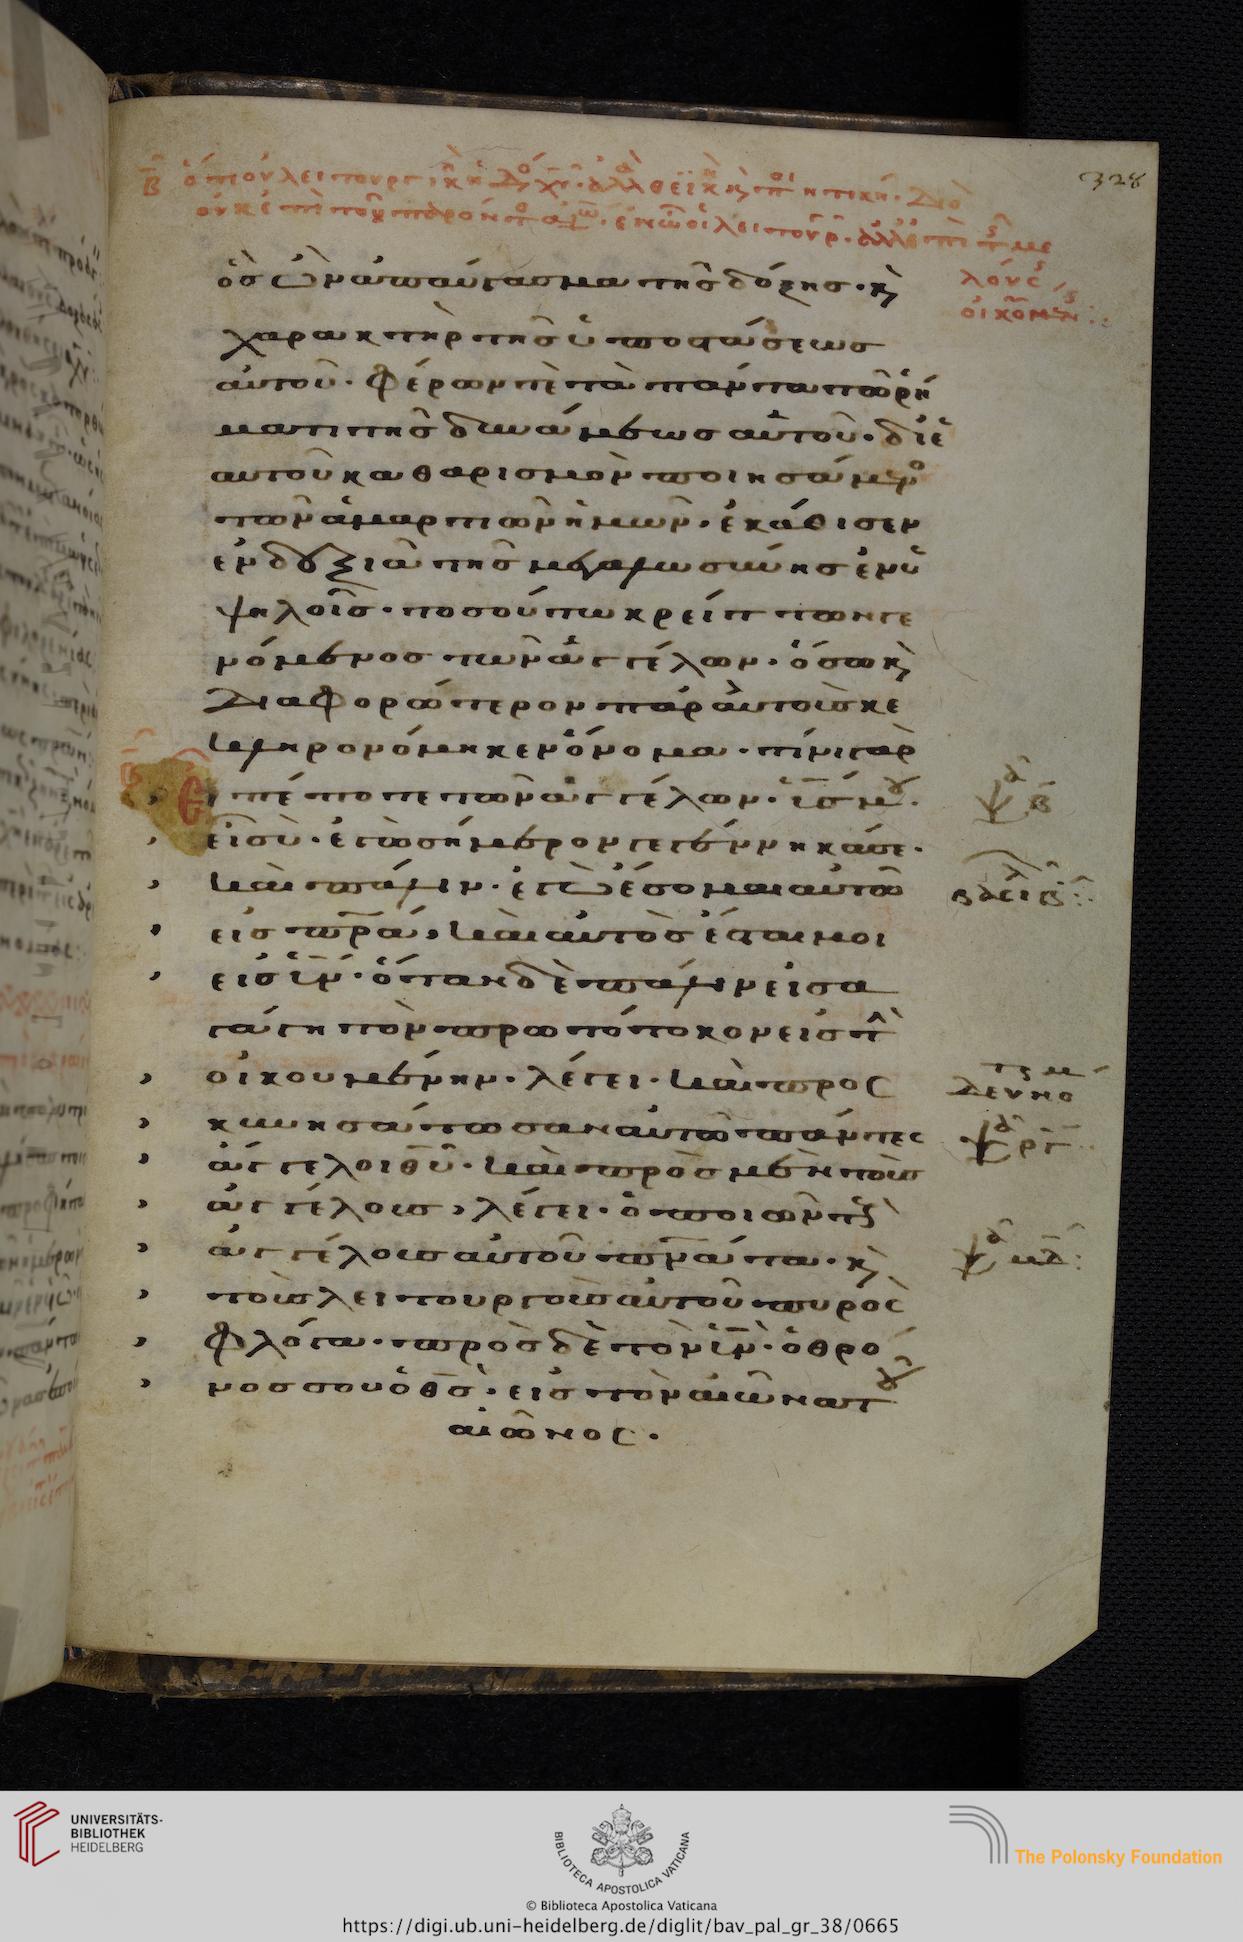 328
Β ὅτι οὐ λειτουργικὴ ἡ δόξ χυ. ἀλλὰ θεϊκὴ κ ποιητική. Διὸ
οὐκ ἐπὶ τοῦ παρόντο αἰω. ἐν ὧ οἱ λειτουρ. ἀλλ' ἐπὶ τ με
λούσ
οἰκομν:
ὃς ὢν ἀπαύγασμα τῆς δόξης. κ
χαρακτὴρ τῆς ὑποστάσεως
αὐτοῦ. φέρων τὲ τὰ πάντα τῶ ῥή
ματι τῆς δυνάμεως αὐτοῦ. δι ἑ
αυτοῦ καθαρισμὸν ποιησάμενο
τῶν ἁμαρτιῶν ἡμῶν. ἐκάθισεν
ἐν δεξιᾶ τῆς μεγαλωσύνης ἐν ὑ
ψηλοῖς. τοσούτω κρείττων γε
νόμενος τῶν ἀγγέλων. ὅσω κ
διαφορώτερον παρ' αὐτοὺς κε
κληρονόμηκεν ὄνομα. τίνι γὰρ
Εἶπέ ποτε τῶν ἀγγέλων. υἱσ μου.
εἶ σὺ. ἐγὼ σήμερον γεγέννηκά σε.
καὶ πάλιν. ἐγὼ ἔσομαι αὐτῶ
εἰς πρα, καὶ αὐτὸς ἔσται μοι
εἰς υἱν. ὅταν δὲ πάλιν εἰσα
γάγη τὸν πρωτότοκον εἰς τὴ
οἰκουμένην. λέγει. καὶ προς
κυνησάτωσαν αὐτῶ πάντες
ἄγγελοι θυ. καὶ πρὸς μὲν τοὺς
ἀγγέλους, λέγει. ὁ ποιῶν τοὺς
ἀγγέλους αὐτοῦ πνατα. κ
τοὺς λειτουργοὺς αὐτοῦ πυρὸς
φλόγα. πρὸς δὲ τὸν υἱν. ὁ θρό
νος σου ὁ θς. εἰς τὸν αἰῶνα τοῦ
αἰῶνος.
ψα β
βασι β:
δευτερο
ψα ργ
ψα μδ:
UNIVERSITÄTS-
BIBLIOTHEK
HEIDELBERG
BIBLIOTECA APOSTOLICA VATICANA
The Polonsky Foundation
© Biblioteca Apostolica Vaticana
https://digi.ub.uni-heidelberg.de/diglit/bav_pal_gr_38/0665